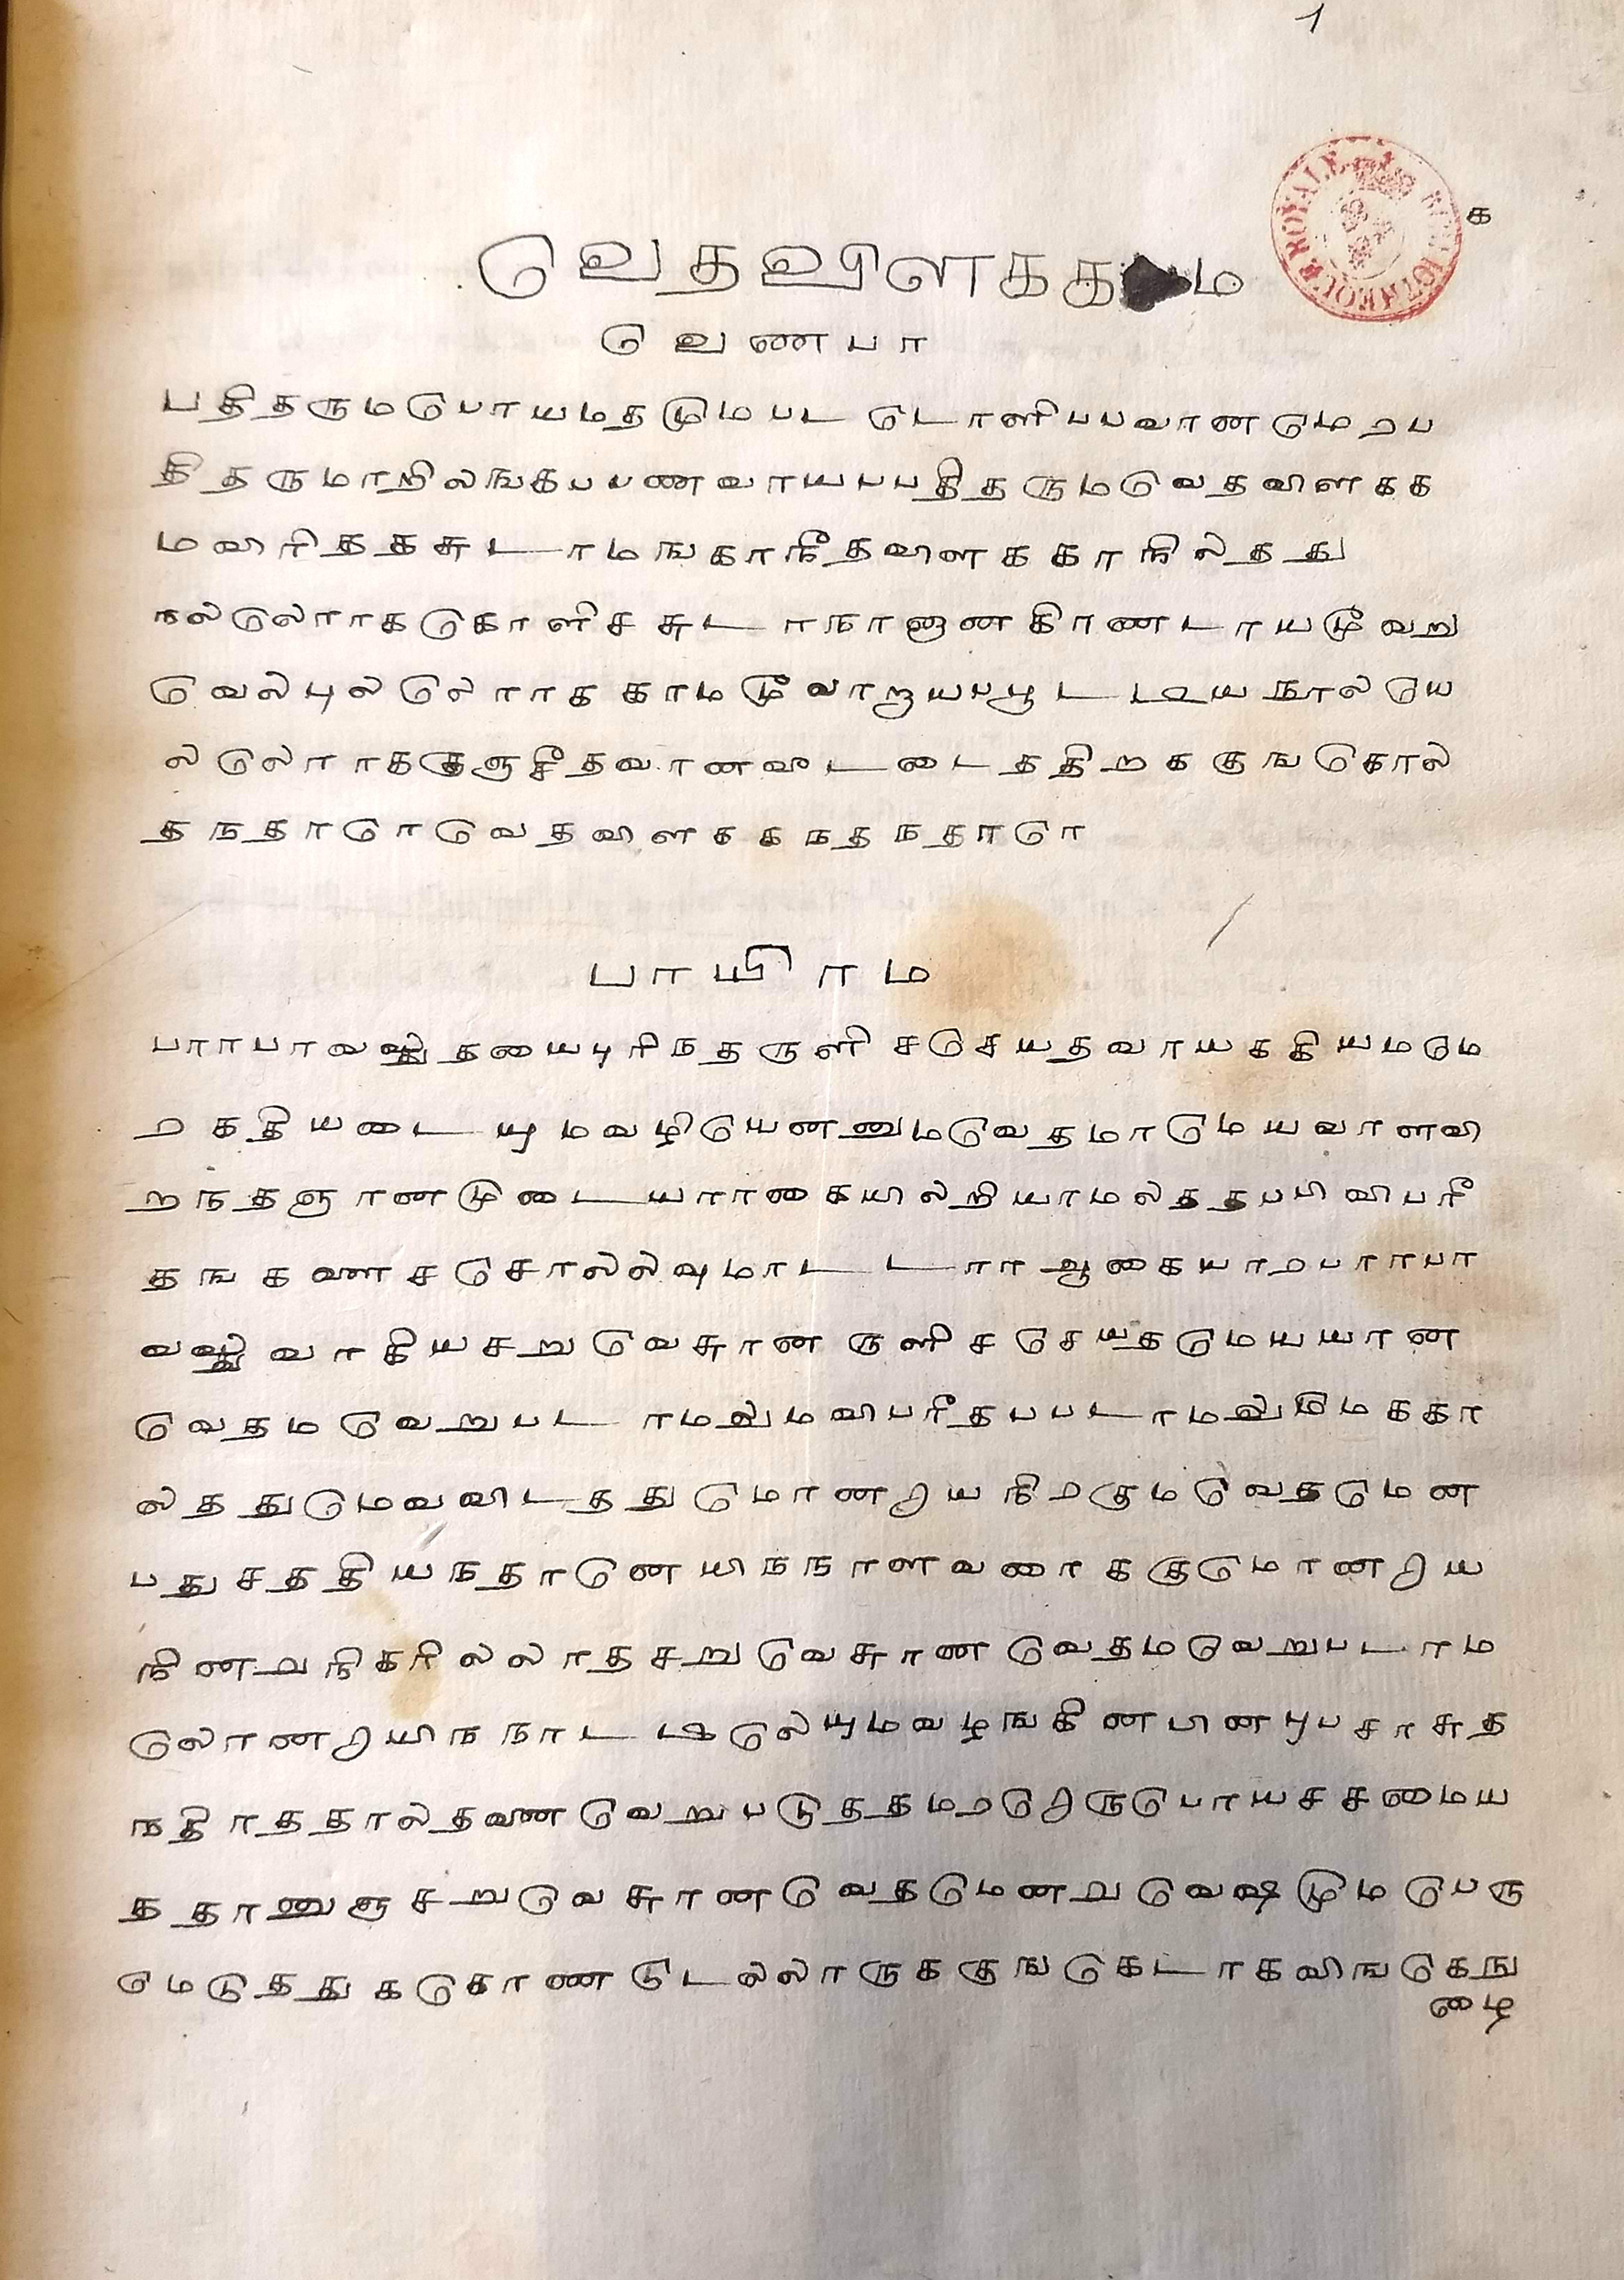 1
க
வெதவிளககம
வெணபா
பதிதருமபொயமதமுமபட டொளிபபவானமெறப
தி தருமாறிலஙகபபணவாயபபதிதருமவெதவிளகக
மவிரிதகசுடராமஙகாநீதவிளககாநிலதது
நலலொரகொளிச சுடர நாளுனகிரணடாயமூவறு
வெலபுலலொரககாமமூவாறாயபபூடடியநூலயெ
லலொரககுஞசீதவானவுடடைததிறககுஙகொல
தநதாரொவெதவிளககநதநதாரொ
பாயிரம
பராபரவஸது தயைபுரிநதருளி சசெயதவாயககியமமெ
றகதியடையுமவழியெனனுமவெதமாமெயவரளவி
றநதஞானமுடையராகையிலறியாமலததபபி விபரீ
தஙகளைசசொலலவுமாடடார ஆகையாறபராபர
வஸதுவாகியசறுவெசுரனருளிசசெயதமெயயான
வெதமவெறுபடாமலுமவிபரீதபபடாமலுமெககா
லததுமெவவிடததுமொனறியநிறகுமவெதமென
பதுசததியநதானெயிநநாளவரைககுமொனறிய
நினறநிகரிலலாதசறுவெசுரனவெதமவெறுபடாம
லொனறாயிநநாடடிலெயுமவழஙகினபினபுபசாசுத
நதிரததாலதனைவெறுபடுததமறறெருபொயசசமைய
ததானுஞசறுவெசுரனவெதமெனறவெஷமுமபெரு
மெடுததுககொணடெலலாருககுஙகெடாகவிஙகெநு
ழை